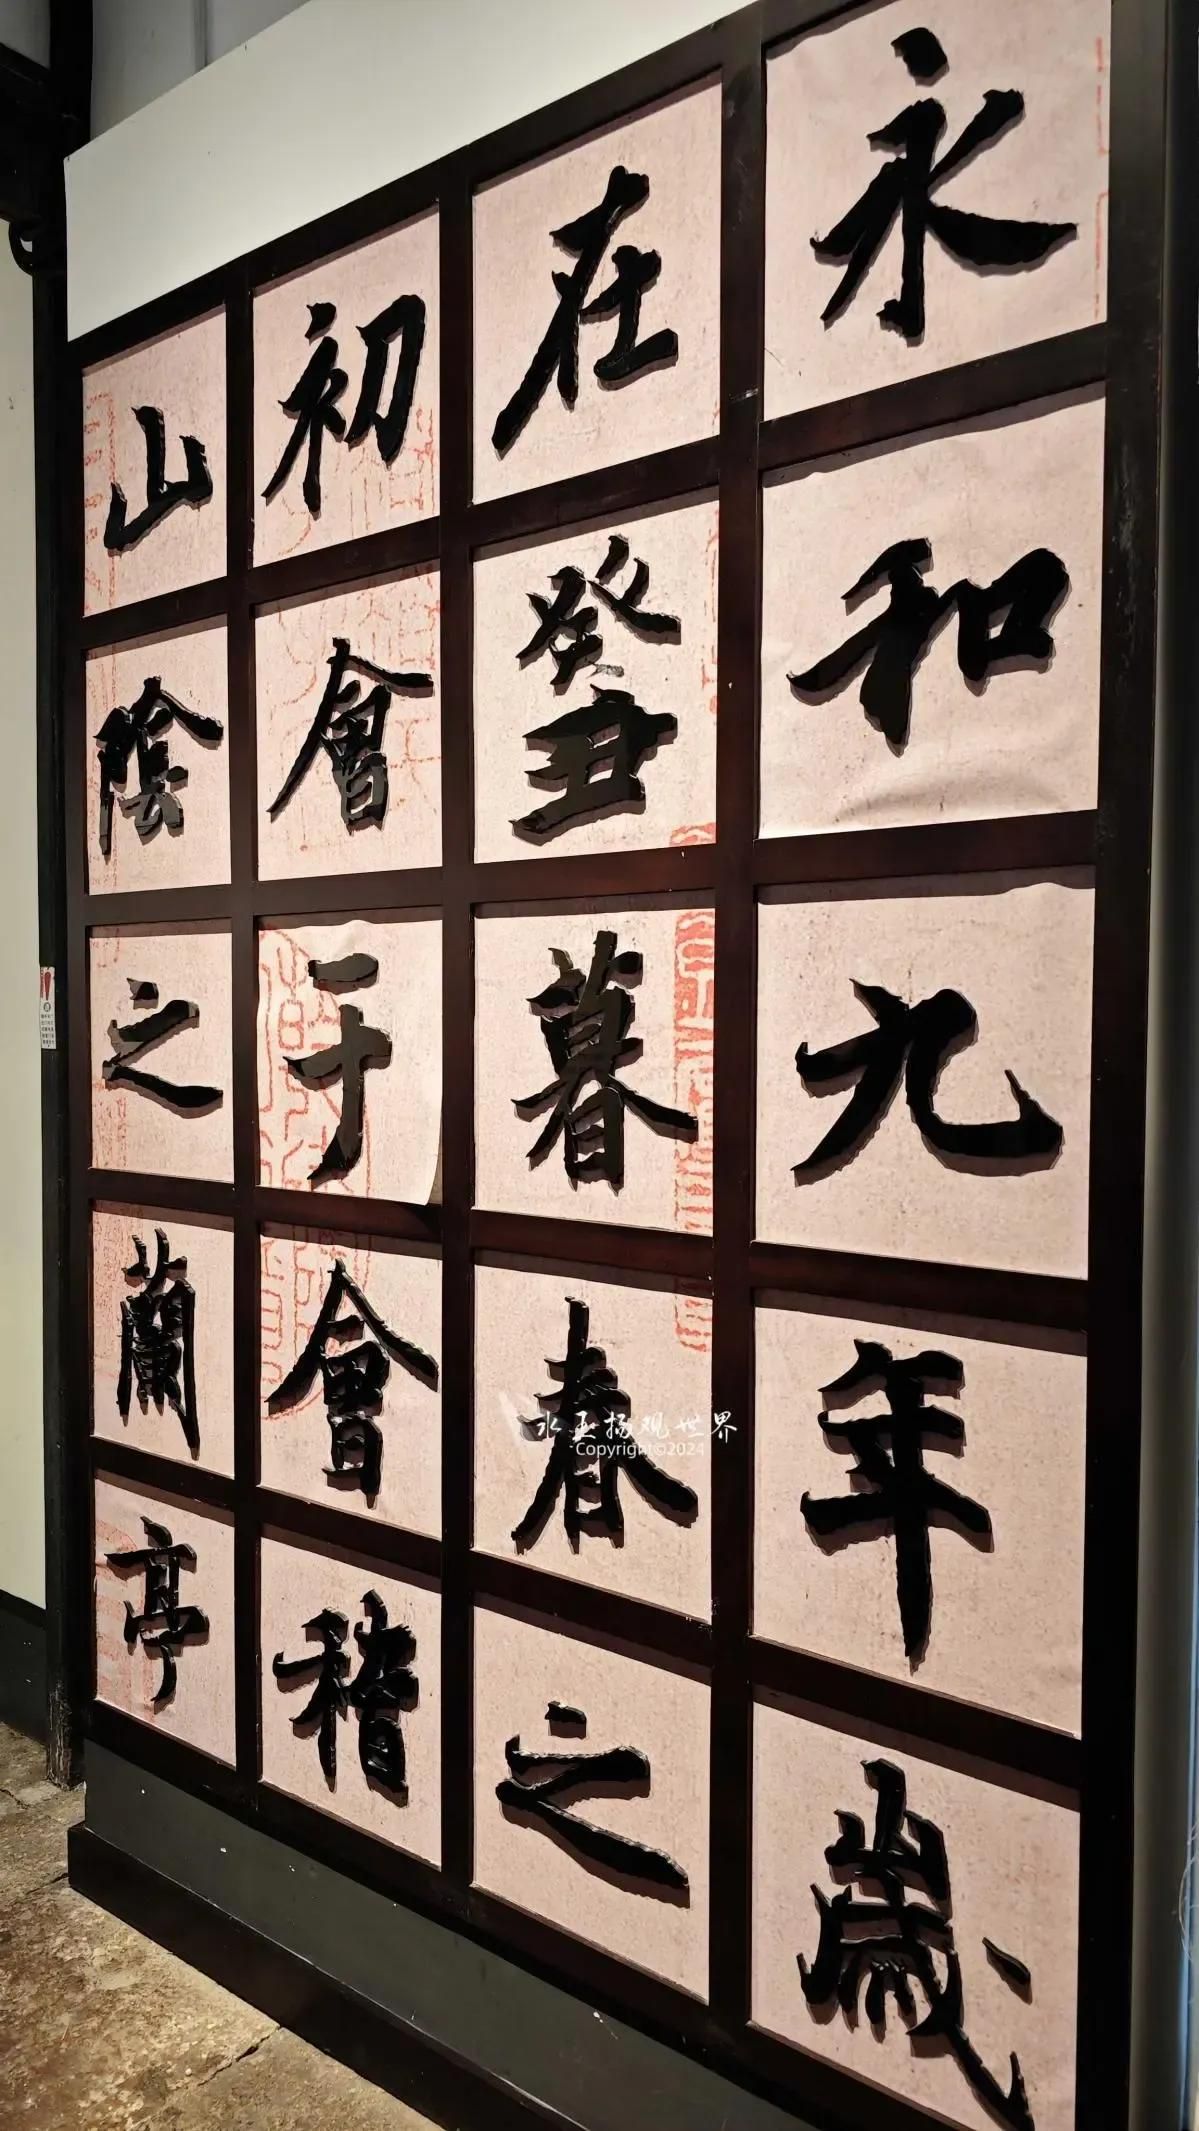 永和九年歲
在癸丑暮春之
初會于會稽
山陰之蘭亭
水玉扬观世界
Copyright©2024